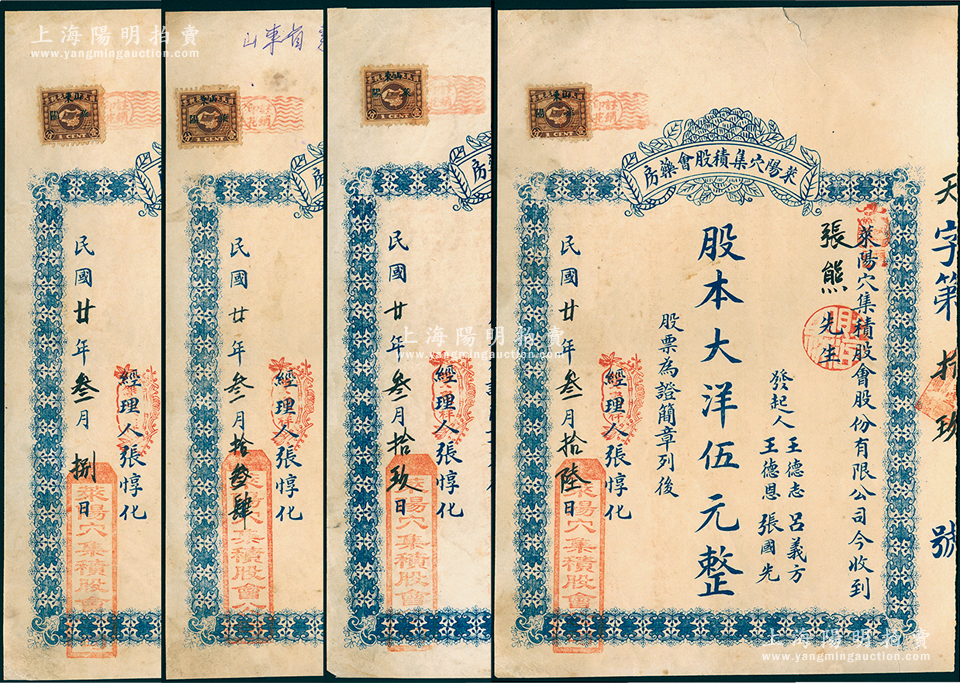 上海陽明拍賣
www.yangmingauction.com
山東省
上海陽明拍賣
www.yangmingauction.com
民國廿年叁月捌日
經理人張惇化
萊陽穴集積股會
民國廿年叁月拾肆
經理人張惇化
民國廿年叁月拾玖日
經理人張惇化
穴集積股會
萊陽穴集積股會藥房
天字第拾玖號
萊陽穴集積股會股份有限公司今收到
張熊先生
發起人王德志 呂義方
王德恩 張國先
股本大洋伍元整
股票為證簡章列後
經理人張惇化
民國廿年叁月拾陸日
萊陽穴集積股會
1 CENT
1 CENT
1 CENT
1 CENT
上海陽明拍賣
www.yangmingauction.com
上海陽明拍賣
www.yangmingauction.com